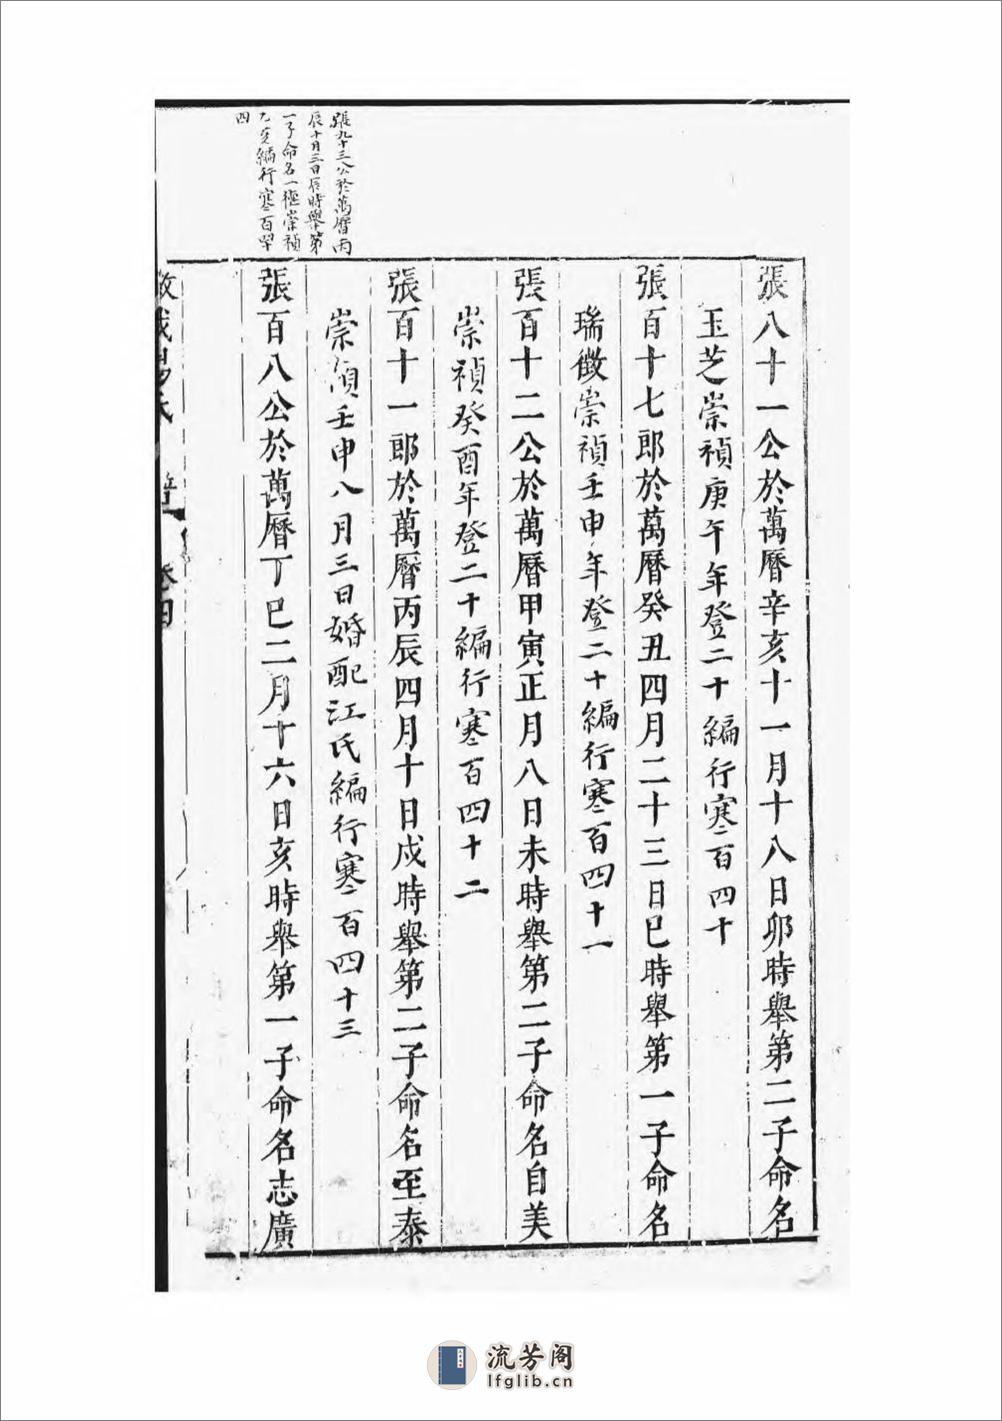 張八十一公於萬曆辛亥十一月十八日卯時舉第二子命名
玉芝崇禎庚午年登二十編行寒百四十
張百十七郎於萬曆癸丑四月二十三日巳時舉第一子命名
瑞徵崇禎壬申年登二十編行寒百四十一
張百十二公於萬曆甲寅正月八日未時舉第二子命名自美
崇禎癸酉年登二十編行寒百四十二
張百十一郎於萬曆丙辰四月十日戌時舉第二子命名至泰
崇禎壬申八月三日婚配江氏編行寒百四十三
張百八公於萬曆丁巳二月十六日亥時舉第一子命名志廣
張九十三公於萬曆丙
辰十月三日辰時舉第
一子命名一極崇禎
編行寒百四十
四
氏 譜 卷四
流芳阁
lfglib.cn